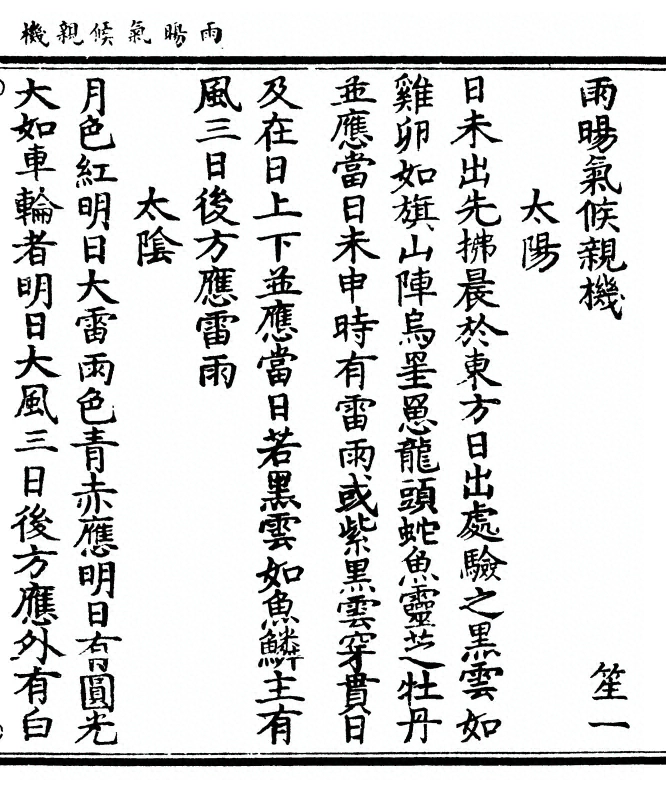 雨暘氣候親機
雨暘氣候親機 笙一
太陽
日未出先拂晨於東方日出處驗之黑雲如
雞卵如旗山陣烏龍頭蛇魚靈芝牡丹
並應當日未申時有雷雨或紫黑雲穿貫日
及在日上下並應當日若黑雲如魚鱗主有
風三日後方應雷雨
太陰
月色紅明日大雷雨色青赤應明日有圓光
大如車輪者明日大風三日後方應外有白